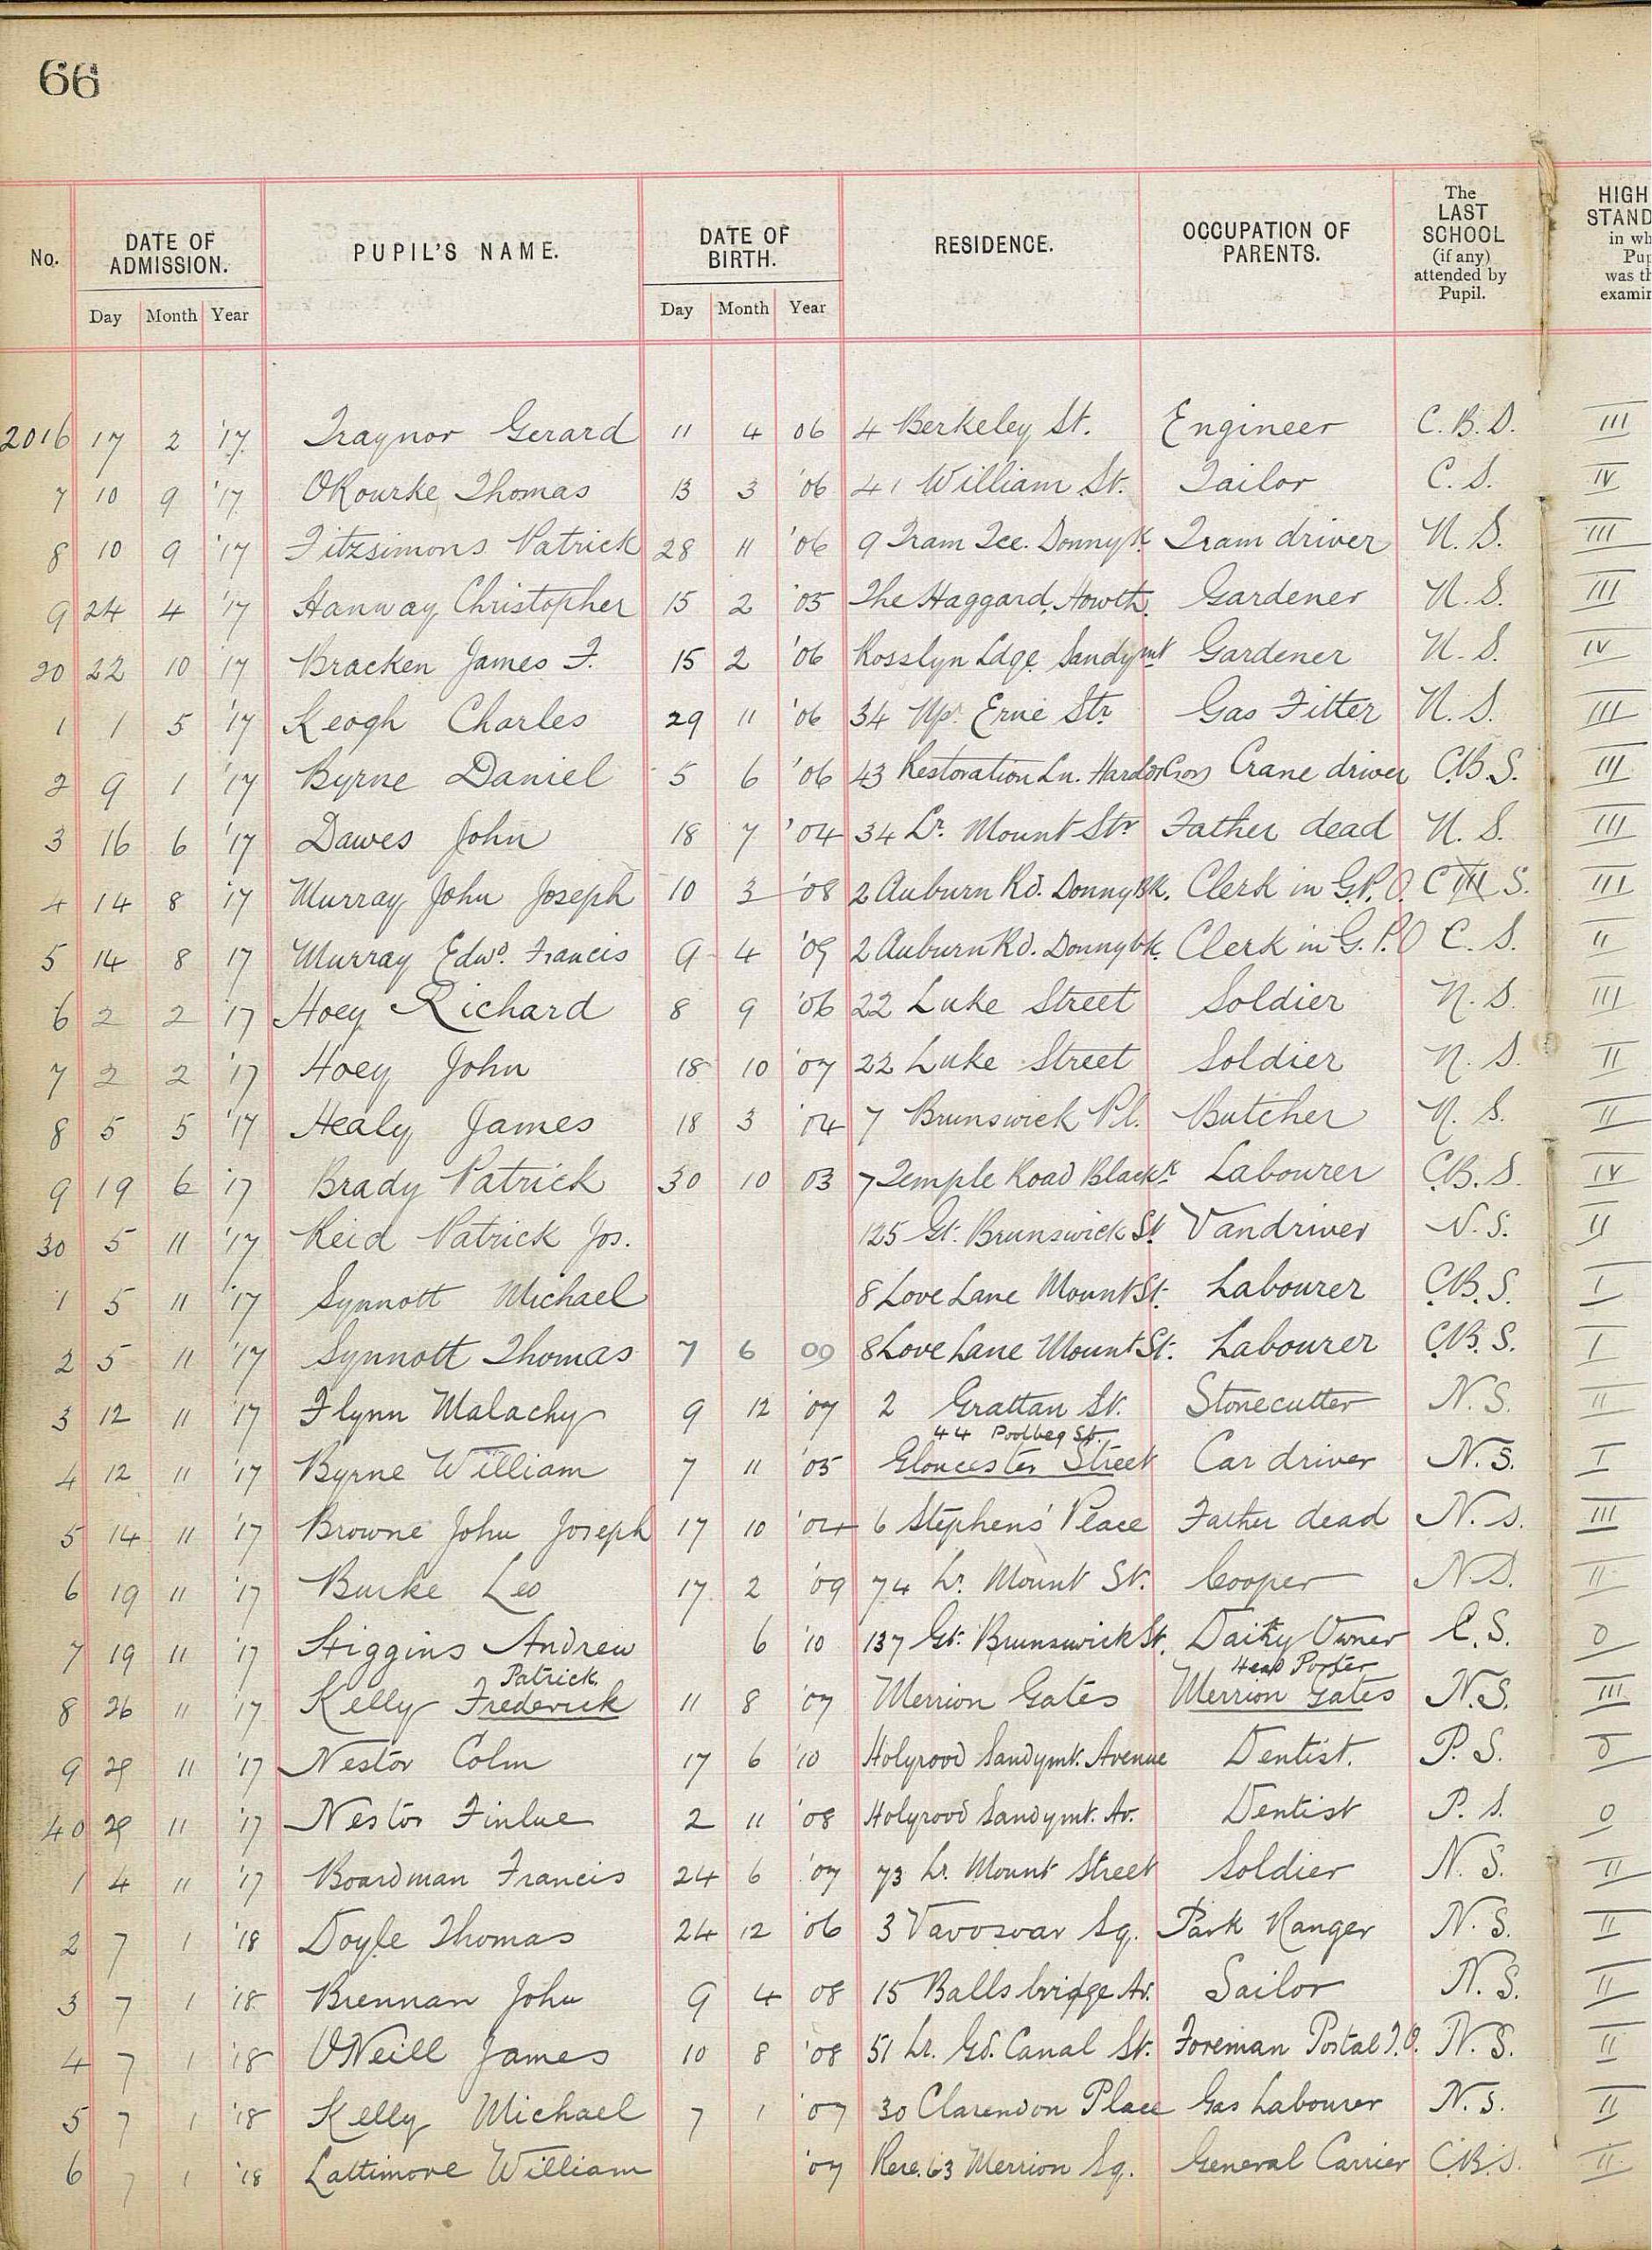 66
No. DATE OF ADMISSION. PUPIL'S NAME. DATE OF BIRTH. RESIDENCE. OCCUPATION OF PARENTS. The LAST SCHOOL (if any) attended by Pupil. HIGH STAND in wh Pup was th examin
Day Month Year Day Month Year
2016 17 2 '17 Traynor Gerard 11 4 06 4 Berkeley St. Engineer C.B.S. III
7 10 9 '17 ORourke Thomas 13 3 '06 41 William St. Tailor C.S. IV
8 10 9 '17 Fitzsimons Patrick 28 11 '06 9 Tram Tce. Donnyk. Tram driver N.S. III
9 24 4 '17 Hanway Christopher 15 2 '05 The Haggard, Howth. Gardener N.S. III
20 22 10 '17 Bracken James F. 15 2 '06 Rosslyn Ldge Sandymt Gardener N.S. IV
1 1 5 '17 Keogh Charles 29 11 '06 34 Upr. Erne Str Gas Fitter N.S. III
2 9 1 '17 Byrne Daniel 5 6 '06 43 Restoration Ln. Crane driver C.B.S. III
3 16 6 '17 Dawes John 18 7 '04 34 Lr. Mount Str Father dead N.S. III
4 14 8 '17 Murray John Joseph 10 3 '08 2 Auburn Rd. DonnyBk. Clerk in G.P.O. C S. III
5 14 8 17 Murray Edwd. Francis 9 4 '09 2 Auburn Rd. Donnybk. Clerk in G.P.O C.S. II
6 2 2 '17 Hoey Richard 8 9 '06 22 Luke Street Soldier N.S. III
7 2 2 '17 Hoey John 18 10 '07 22 Luke Street Soldier N.S. II
8 5 5 '17 Healy James 18 3 '04 7 Brunswick Pl. Butcher N.S. II
9 19 6 17 Brady Patrick 30 10 03 7 Temple Road Blackr. Labourer C.B.S. IV
30 5 11 '17 Reid Patrick Jos. 125 Gt. Brunswick St. Vandriver N.S. II
1 5 11 '17 Synnott Michael 8 Love Lane Mount St. Labourer C.B.S. I
2 5 11 '17 Synnott Thomas 7 6 09 8 Love Lane Mount St. Labourer C.B.S. I
3 12 11 '17 Flynn Malachy 9 12 '07 2 Grattan St. Stonecutter N.S. II
44 Poolbeg St.
4 12 11 '17 Byrne William 7 11 '05 Gloucester Street Car driver N.S. I
5 14 11 '17 Browne John Joseph 17 10 '04 6 Stephens' Place Father dead N.S. III
6 19 11 '17 Burke Leo 17 2 '09 74 Lr. Mount St. Cooper N.S. II
7 19 11 '17 Higgins Andrew 6 '10 137 Gt. Brunswick St. Dairy Owner C.S. 0
Patrick Head Porter
8 26 11 '17 Kelly Frederick 11 8 '07 Merrion Gates Merrion Gates N.S. III
9 29 11 '17 Nestor Colm 17 6 '10 Holyrood Sandymt. Avenue Dentist. P.S. 0
40 29 11 '17 Nestor 2 11 '08 Holyrood Sandymt. Av. Dentist P.S. 0
1 4 11 '17 Boardman Francis 24 6 '07 73 Lr. Mount Street Soldier N.S. II
2 7 1 '18 Doyle Thomas 24 12 '06 3 Vavosvar Sq. Park Ranger N.S. II
3 7 1 '18 Brennan John 9 4 08 15 Ballsbridge Av. Sailor N.S. II
4 7 1 '18 O'Neill James 10 8 '08 51 Lr. Gd. Canal St. Foreman Postal N.S. II
5 7 1 '18 Kelly Michael 7 1 '07 30 Clarendon Place Gas Labourer N.S. II
6 7 1 '18 Lattimore William '07 Rere. 63 Merrion Sq. General Carrier C.B.S. II